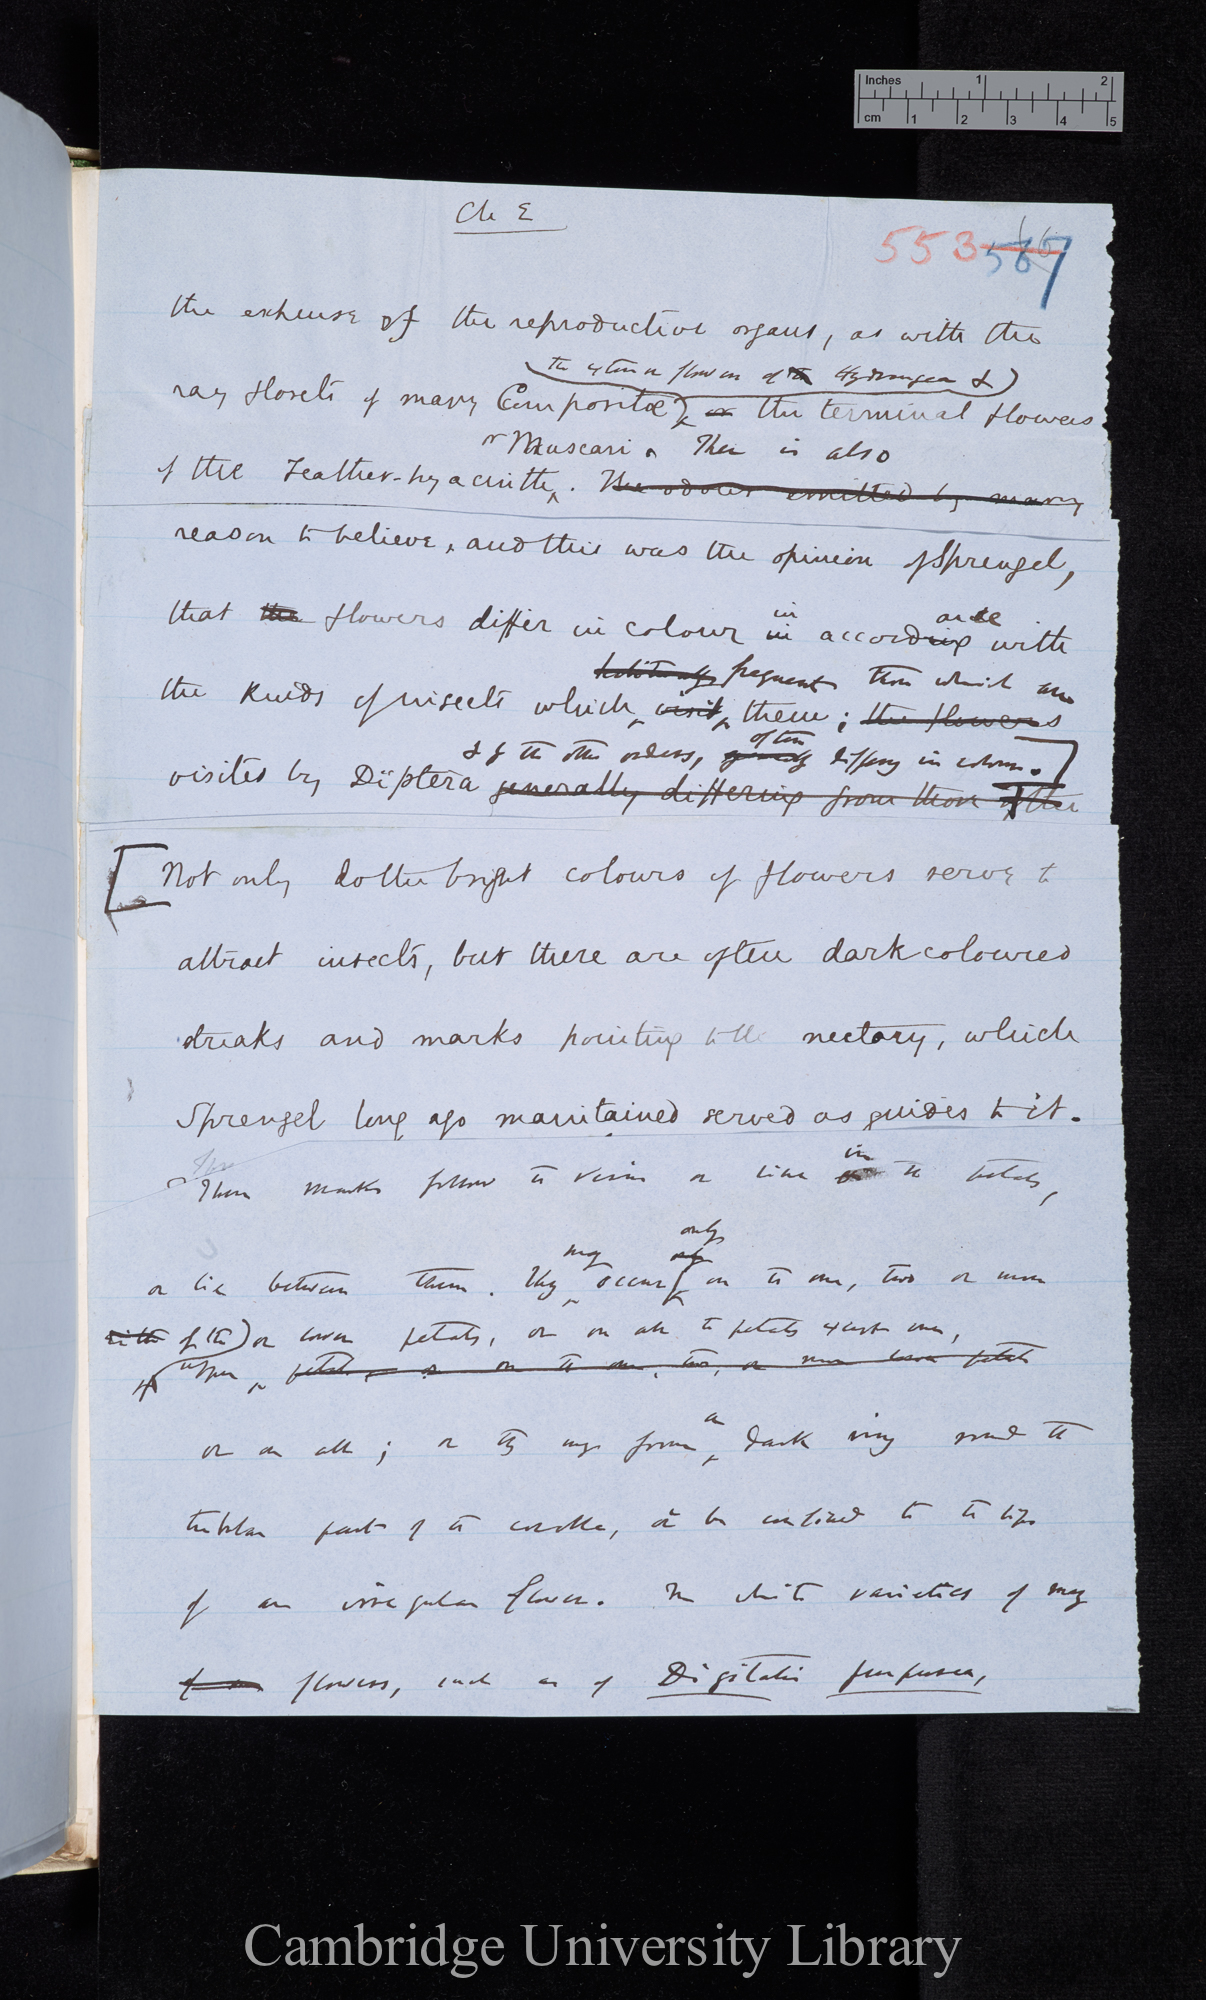 Inches 1 2
cm 1 2 3 4 5
Ch E
553 567
the expense of the reproductive organs, as with the
the exterior flowers of the Hydrangea &
ray florets of many Compositæ, or the terminal flowers
or Muscari. There is also
of the Feather-hyacinth. The odours emitted by many
reason to believe, and this was the opinion of Sprengel,
in ance
that the flowers differ in colour in according with
habitually frequent those which are
the kinds of insects which visit them; the flowers
& of the other orders, generally often differing in colour.
visited by Diptera generally differing from those of the
Not only do the bright colours of flowers serve to
attract insects, but there are often dark coloured
streaks and marks pointing to the nectary, which
Sprengel long ago maintained served as guides to it.
in
These marks follow the veins or line the petals,
only
may only
or lie between them. They occur on the one, two or more
either of the) or lower petals, or on all the petals except one,
upper petals, or on the one, two, or more lower petals
a
or on all; or they may form dark ring round the
tubular part of the corolla, or be confined to the lips
of an irregular flower. In white varieties of many
flowers, such as of Digitalis purpurea,
Cambridge University Library